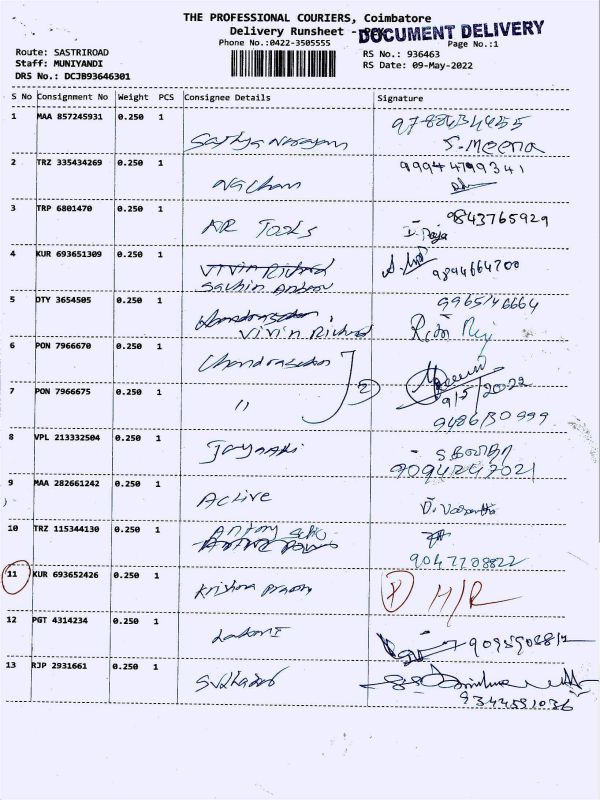 THE PROFESSIONAL COURIERS, Coimbatore
Delivery Runsheet -
DOCUMENT DELIVERY
Phone No.:0422-3505555
Page No.:1
Route: SASTRIROAD
RS No.: 936463
Staff: MUNIYANDI
RS Date: 09-May-2022
DRS No.: DCJB93646301
S No Consignment No Weight PCS Consignee Details Signature
1 MAA 857245931 0.250 1 Sathya Narayan
S. Meena
2 TRZ 335434269 0.250 1 99944799341
3 TRP 6801470 0.250 1 AR Tools 9843765929
D. Raja
4 KUR 693651309 0.250 1 Vivin Richard 9894664700
Sachin Antony
5 DTY 3654505 0.250 1 Vivin Richard 9965746664
6 PON 7966670 0.250 1 Chandrasekar 2
9/5/2022
7 PON 7966675 0.250 1 "
8 VPL 213332504 0.250 1 9094247021
9 MAA 282661242 0.250 1 Active
10 TRZ 115344130 0.250 1 Antony 9047708822
11 KUR 693652426 0.250 1 Krishna H/R
12 PGT 4314234 0.250 1
13 RJP 2931661 0.250 1 9344591036